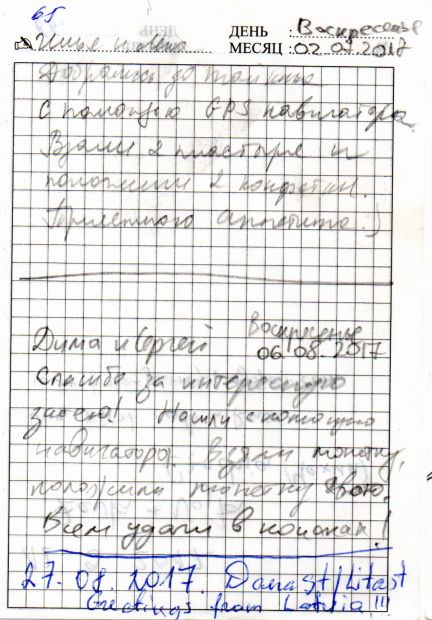 65
ДЕНЬ : Воскресенье
Илья и Лена МЕСЯЦ : 02.07.2017
Добрались до тайника
с помощью GPS навигатора
Взяли 2 пластыря и
положили 2 конфетки.
Приятного аппетита :)
Воскресенье
Дима и Сергей 06.08.2017
Спасибо за интересную
Нашли с помощью
навигатора. Взяли монетку,
положили монетку
Всем удачи в поисках!
27.08.2017. Danast/Litast
Greetings from Latvia!!!